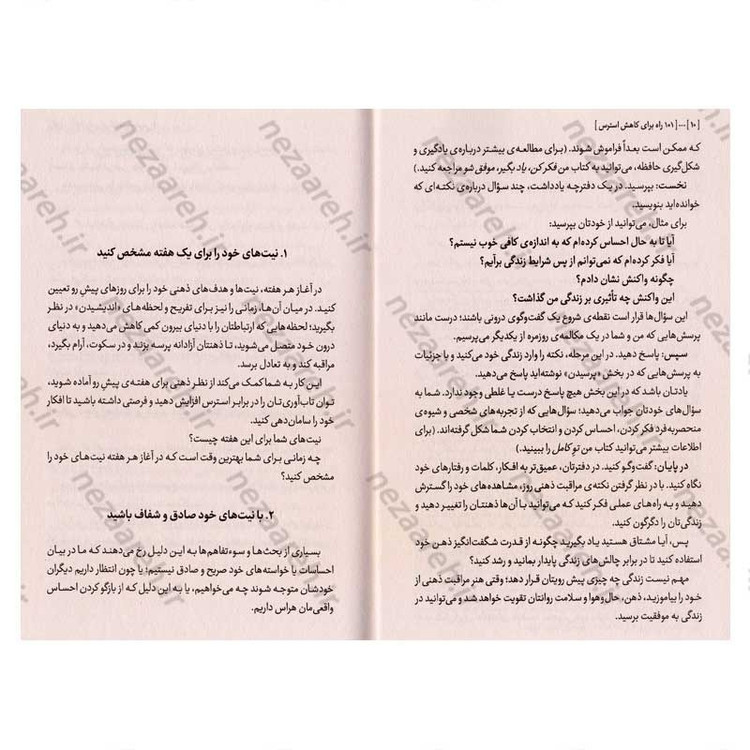 [ ۱۰ ]---[ ۱۰۱ راه برای کاهش استرس ]
که ممکن است بعداً فراموش شوند. (برای مطالعه‌ی بیشتر درباره‌ی یادگیری و
شکل‌گیری حافظه، می‌توانید به کتاب من فکر کن، یاد بگیر، موفق شو مراجعه کنید.)
نخست: بپرسید. در یک دفترچه یادداشت، چند سؤال درباره‌ی نکته‌ای که
خوانده‌اید بنویسید.
برای مثال، می‌توانید از خودتان بپرسید:
آیا تا به حال احساس کرده‌ام که به اندازه‌ی کافی خوب نیستم؟
آیا فکر کرده‌ام که نمی‌توانم از پس شرایط زندگی برآیم؟
چگونه واکنش نشان دادم؟
این واکنش چه تأثیری بر زندگی من گذاشت؟
این سؤال‌ها قرار است نقطه‌ی شروع یک گفت‌وگوی درونی باشند؛ درست مانند
پرسش‌هایی که من و شما در یک مکالمه‌ی روزمره از یکدیگر می‌پرسیم.
سپس: پاسخ دهید. در این مرحله، نکته را وارد زندگی خود می‌کنید و با جزئیات
به پرسش‌هایی که در بخش «پرسیدن» نوشته‌اید پاسخ می‌دهید.
یادتان باشد که در این بخش هیچ پاسخ درست یا غلطی وجود ندارد. شما به
سؤال‌های خودتان جواب می‌دهید؛ سؤال‌هایی که از تجربه‌های شخصی و شیوه‌ی
منحصربه‌فرد فکر کردن، احساس کردن و انتخاب کردن شما شکل گرفته‌اند. (برای
اطلاعات بیشتر می‌توانید کتاب من تو کامل را ببینید.)
در پایان: گفت‌وگو کنید. در دفترتان، عمیق‌تر به افکار، کلمات و رفتارهای خود
نگاه کنید. با در نظر گرفتن نکته‌ی مراقبت ذهنی روز، مشاهده‌های خود را گسترش
دهید و به راه‌های عملی فکر کنید که می‌توانید با آن‌ها ذهنتان را تغییر دهید و
زندگی‌تان را دگرگون کنید.
پس، آیا مشتاق هستید یاد بگیرید چگونه از قدرت شگفت‌انگیز ذهن خود
استفاده کنید تا در برابر چالش‌های زندگی پایدار بمانید و رشد کنید؟
مهم نیست زندگی چه چیزی پیش رویتان قرار دهد؛ وقتی هنر مراقبت ذهنی از
خود را بیاموزید، ذهن، حال‌وهوا و سلامت روانتان تقویت خواهد شد و می‌توانید در
زندگی به موفقیت برسید.
۱. نیت‌های خود را برای یک هفته مشخص کنید
در آغاز هر هفته، نیت‌ها و هدف‌های ذهنی خود را برای روزهای پیش رو تعیین
کنید. در میان آن‌ها، زمانی را نیز برای تفریح و لحظه‌های «اندیشیدن» در نظر
بگیرید؛ لحظه‌هایی که ارتباطتان را با دنیای بیرون کمی کاهش می‌دهید و به دنیای
درون خود متصل می‌شوید، تا ذهنتان آزادانه پرسه بزند و در سکوت، آرام بگیرد،
مراقبه کند و به تعادل برسد.
این کار به شما کمک می‌کند از نظر ذهنی برای هفته‌ی پیش رو آماده شوید،
توان تاب‌آوری‌تان را در برابر استرس افزایش دهید و فرصتی داشته باشید تا افکار
خود را سامان‌دهی کنید.
نیت‌های شما برای این هفته چیست؟
چه زمانی برای شما بهترین وقت است که در آغاز هر هفته نیت‌های خود را
مشخص کنید؟
۲. با نیت‌های خود صادق و شفاف باشید
بسیاری از بحث‌ها و سوءتفاهم‌ها به این دلیل رخ می‌دهند که ما در بیان
احساسات یا خواسته‌های خود صریح و صادق نیستیم؛ یا چون انتظار داریم دیگران
خودشان متوجه شوند چه می‌خواهیم، یا به این دلیل که از بازگو کردن احساس
واقعی‌مان هراس داریم.
nezaareh.ir
nezaareh.ir
nezaareh.ir
nezaareh.ir
nezaareh.ir
nezaareh.ir